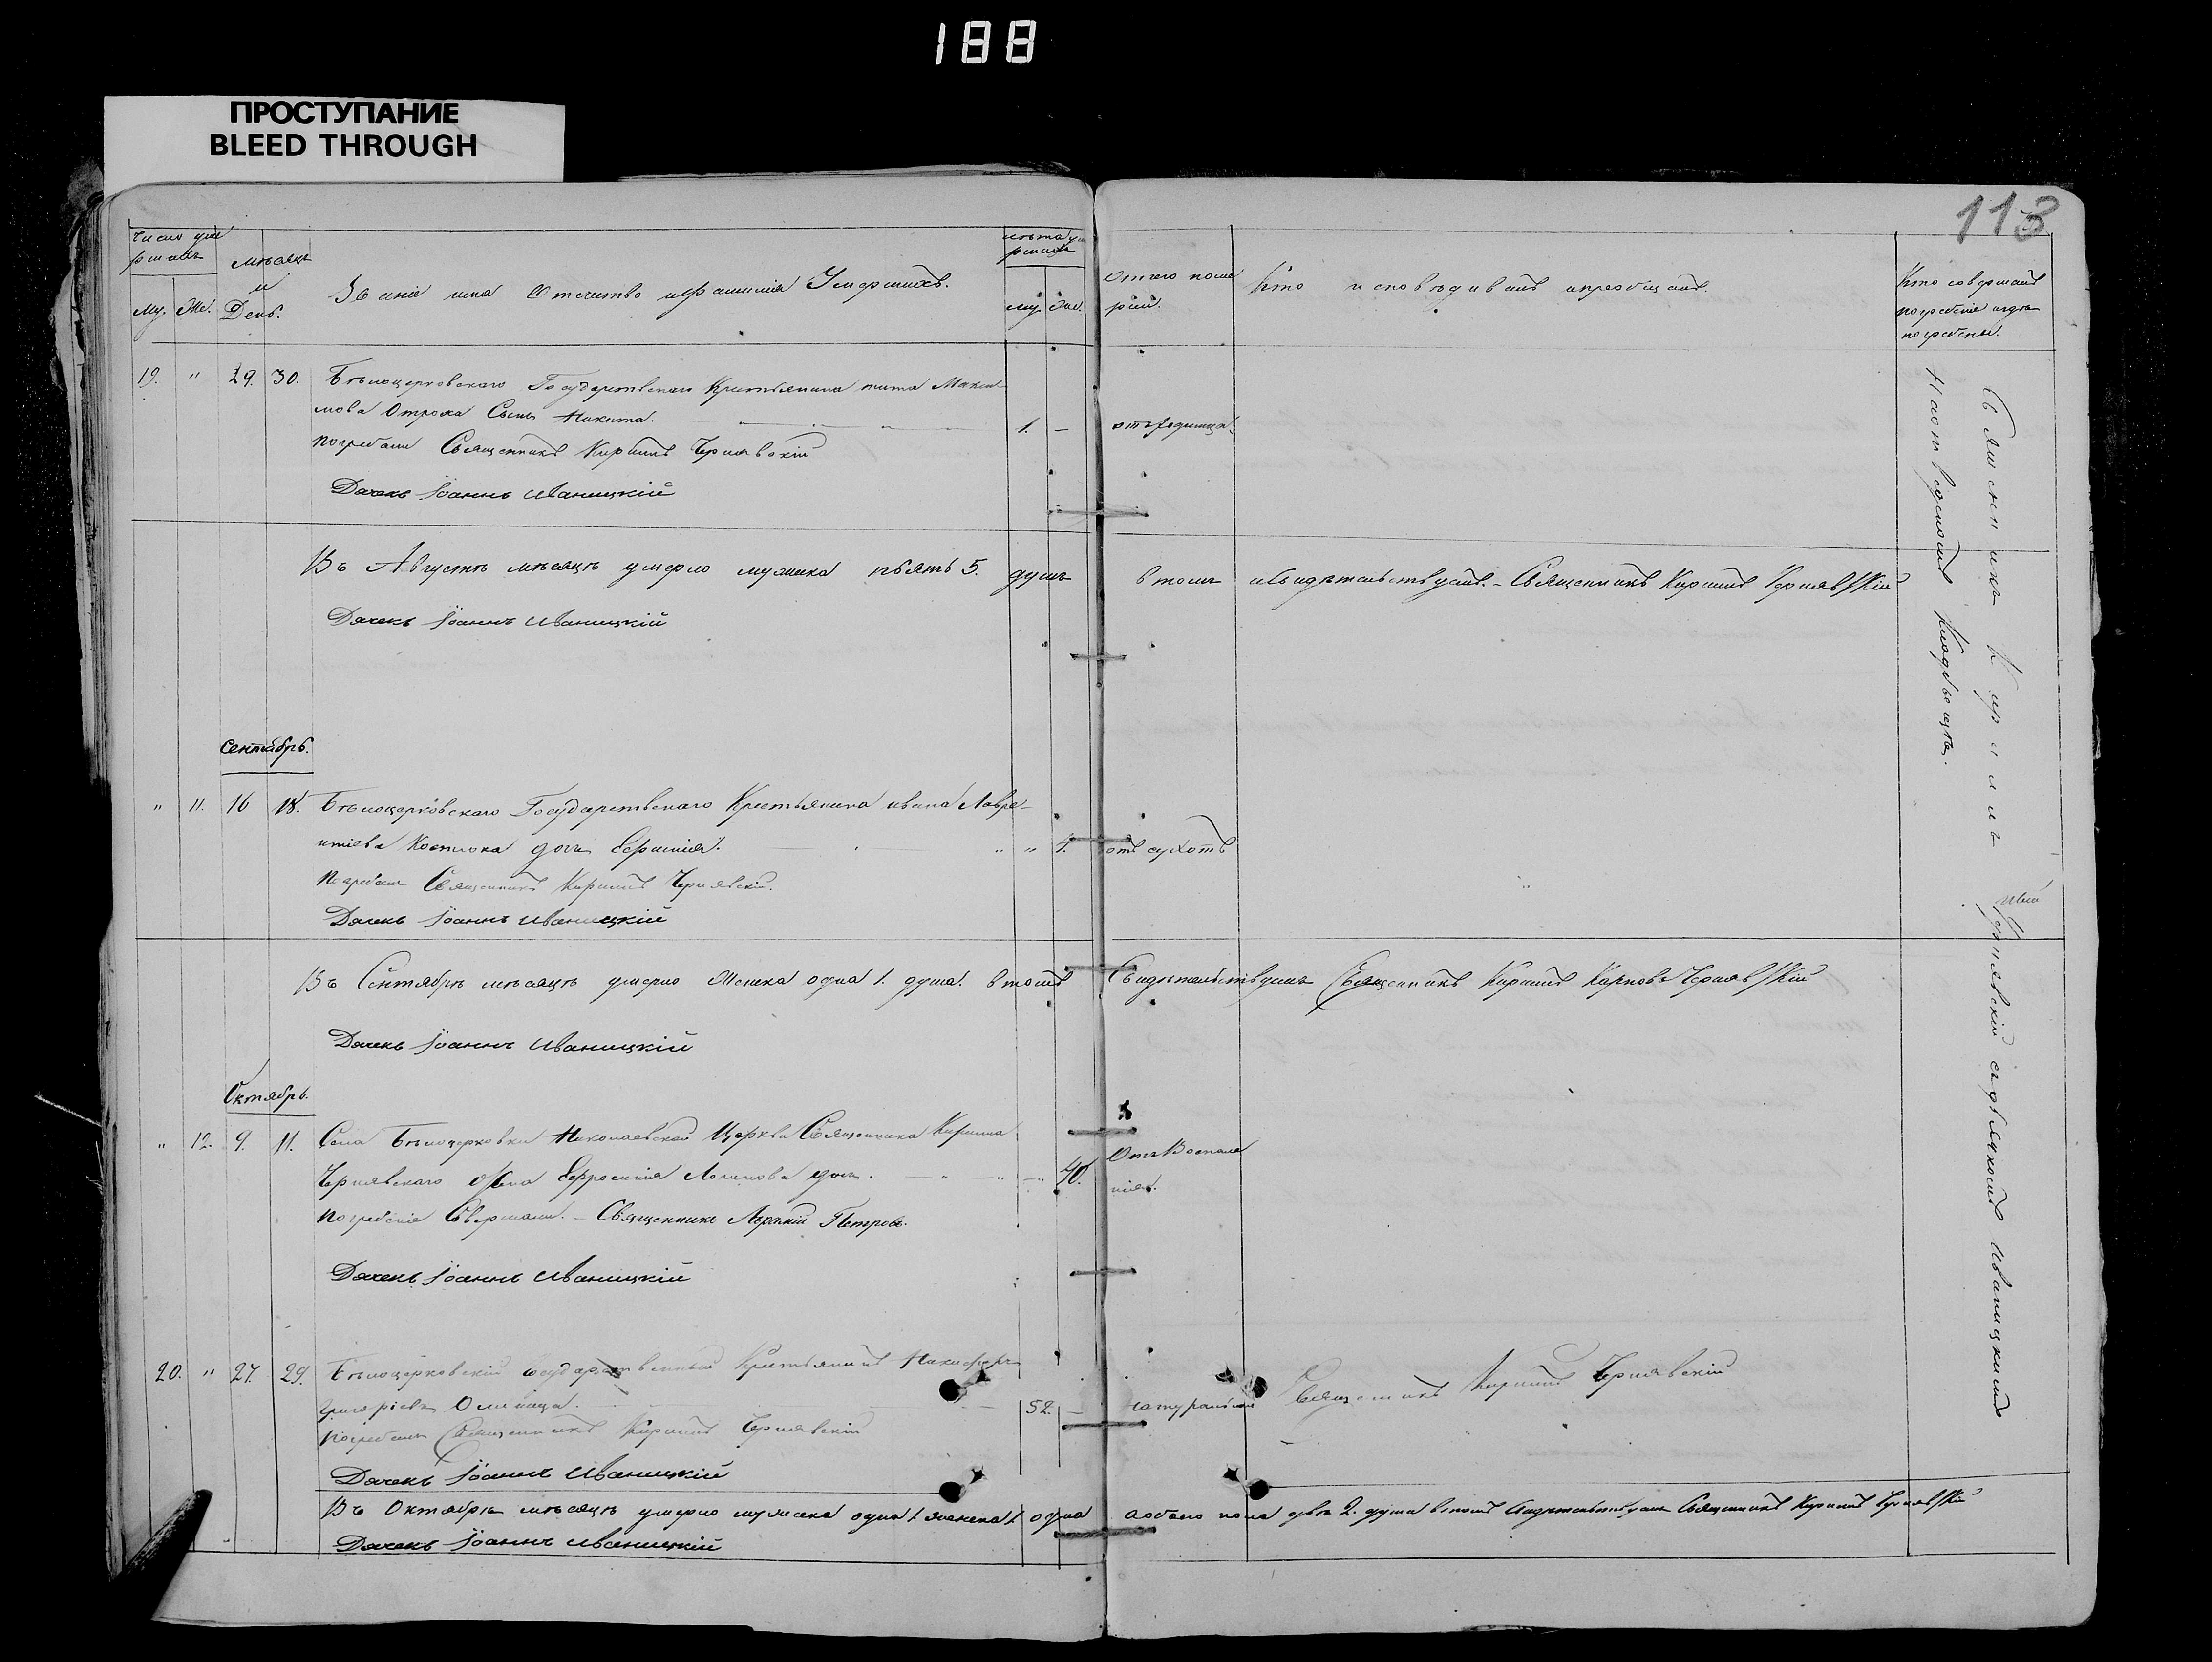 188
ПРОСТУПАНИЕ
BLEED THROUGH
113
Число уме
ршихъ
мѣсяцъ
и
День.
Званіе имя отечество и фамилія Умершихъ.
лѣта ум
ршихъ
Му. Же.
му. жен.
Отчего поме
рли.
Кто исповѣдивалъ и пріобщалъ.
Кто совершалъ
погребеніе и гдѣ
погребены.
19. " 29. 30. Бѣлоцерковскаго Государственаго Крестьянина тита Макси
мова Отрока Сынъ Никита. 1. — отъ родимца.
Погребалъ Священникъ Кирилъ Чернявскій
Дячекъ Іоаннъ Иваницкій
Въ Августѣ мѣсяцѣ умерло мужска пѣять 5. душъ в томъ и Свидѣтельствуемъ. – Священникъ Кирилъ Чернявскій
Дячекъ Іоаннъ Иваницкій
Сентябрь.
" 11. 16 18. Бѣлоцерковскаго Государственаго Крестьянина ивана Лавре-
нтіева Костюка дочь Ефимія. " 1. отъ сухотъ
Погребалъ Священникъ Кирилъ Чернявскій.
Дячекъ Іоаннъ Иваницкій
Въ Сентябрѣ мѣсяцѣ умерло Женска одна 1. душа. в томъ Свидѣтельствуемъ Священникъ Кирилъ Карповъ Чернявскій
Дячекъ Іоаннъ Иваницкій
Октябрь.
" 12. 9. 11. Села Бѣлоцерковки Николаевской Церкви Священника Кирила
Чернявского жена Ефросинія Логинова дочь. 40. Отъ Воспале
нія.
Погребеніе Совершалъ. – Священникъ Петровъ.
Дячекъ Іоаннъ Иваницкій
20. " 27. 29. Бѣлоцерковскій государственный Крестьянинъ Никифоръ
Григоріевъ Олейница. 52. — натуральною Священникъ Кирилъ Чернявскій
Погребалъ Священникъ Кирилъ Чернявскій
Дячекъ Іоаннъ Иваницкій
Въ Октябрѣ мѣсяцѣ умерло мужска одна 1 женска 1. одна а обоего пола двѣ 2. души в томъ Свидѣтельствуемъ Священникъ Кирилъ Чернявскій
Дячекъ Іоаннъ Иваницкій
Священникъ Кирилъ Чернявскій съ дьячкомъ Иваницкимъ
На отведеномъ Кладбищѣ.